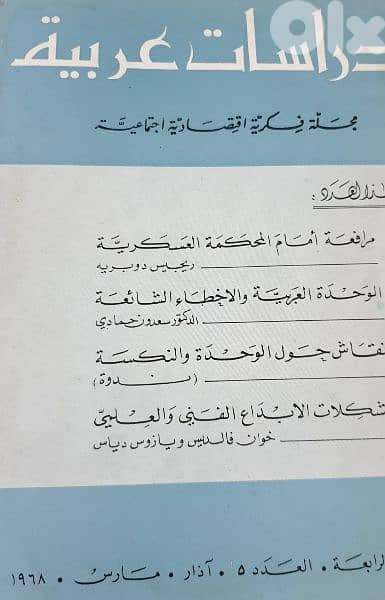 olx
دراسات عربية
مجلة فكرية اقتصادية اجتماعية
هذا العدد :
مرافعة أمام المحكمة العسكرية
ريجيس دوبريه
الوحدة العربية والاخطاء الشائعة
الدكتور سعدون حمادي
نقاش حول الوحدة والنكسة
(ندوة)
شكلات الابداع الفني والعلمي
خوان فالديس وبازوس دياس
الرابعة • العدد ٥ • آذار • مارس • ١٩٦٨